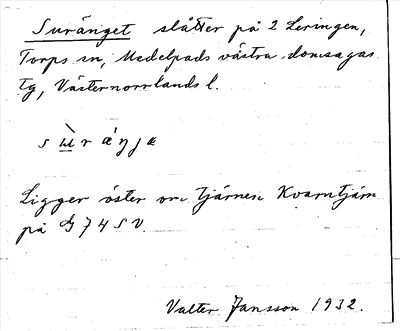 Suränget slåtter på 2 Leringen,
Torps sn, Medelpads västra domsagas
tg, Västernorrlands l.
Ligger öster om tjärnen Kvarntjärn
på G 74 S V.
Valter Jansson 1932.